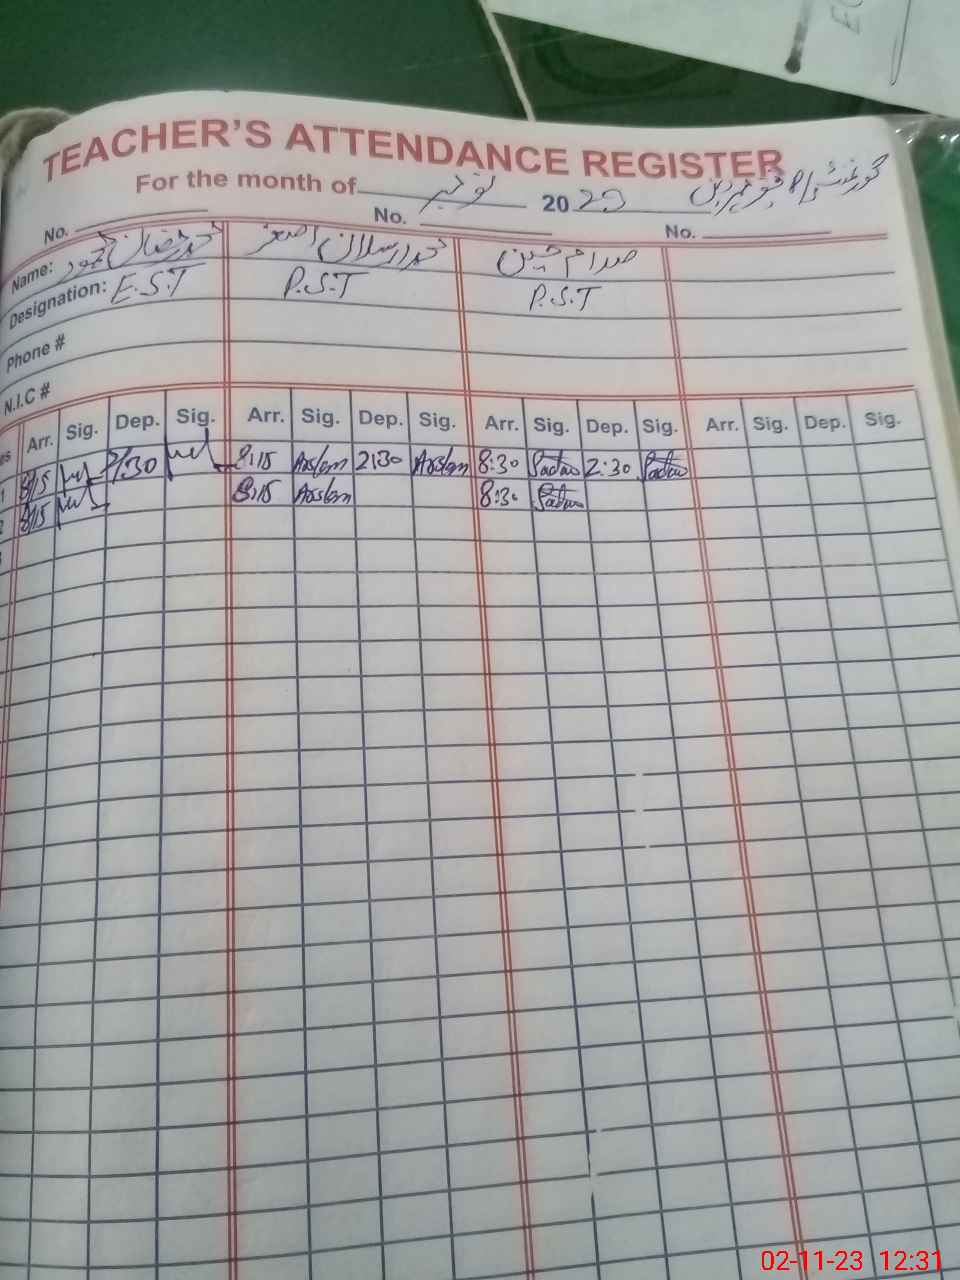 TEACHER'S ATTENDANCE REGISTER
For the month of نومبر 2023 گورنمنٹ
No. No. No.
Name: محمد رمضان محمود محمد ارسلان اصغر صدام حسین
Designation: E.S.T P.S.T P.S.T
Phone #
N.I.C #
Arr. Sig. Dep. Sig. Arr. Sig. Dep. Sig. Arr. Sig. Dep. Sig. Arr. Sig. Dep. Sig.
1 8/15 2/30 8:15 Arslan 2:30 Arslan 8:30 Sadam 2:30 Sadam
2 8/15 8:15 Arslan 8:30 Sadam
02-11-23 12:31